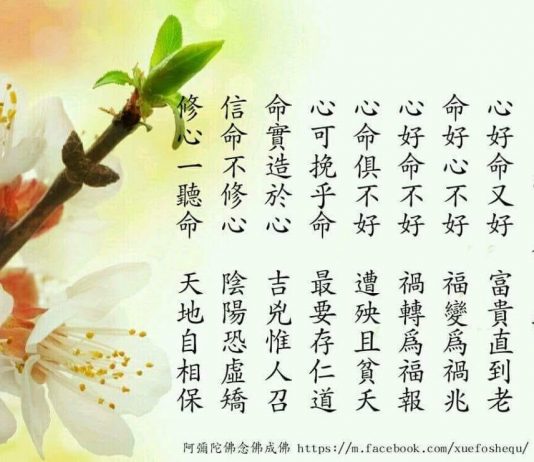 心好命又好　富貴直到老
命好心不好　福變為禍兆
心好命不好　禍轉為福報
心命俱不好　遭殃且貧夭
心可挽乎命　最要存仁道
命實造於心　吉兇惟人召
信命不修心　陰陽恐虛矯
修心一聽命　天地自相保
阿彌陀佛念佛成佛 https://m.facebook.com/xuefoshequ/